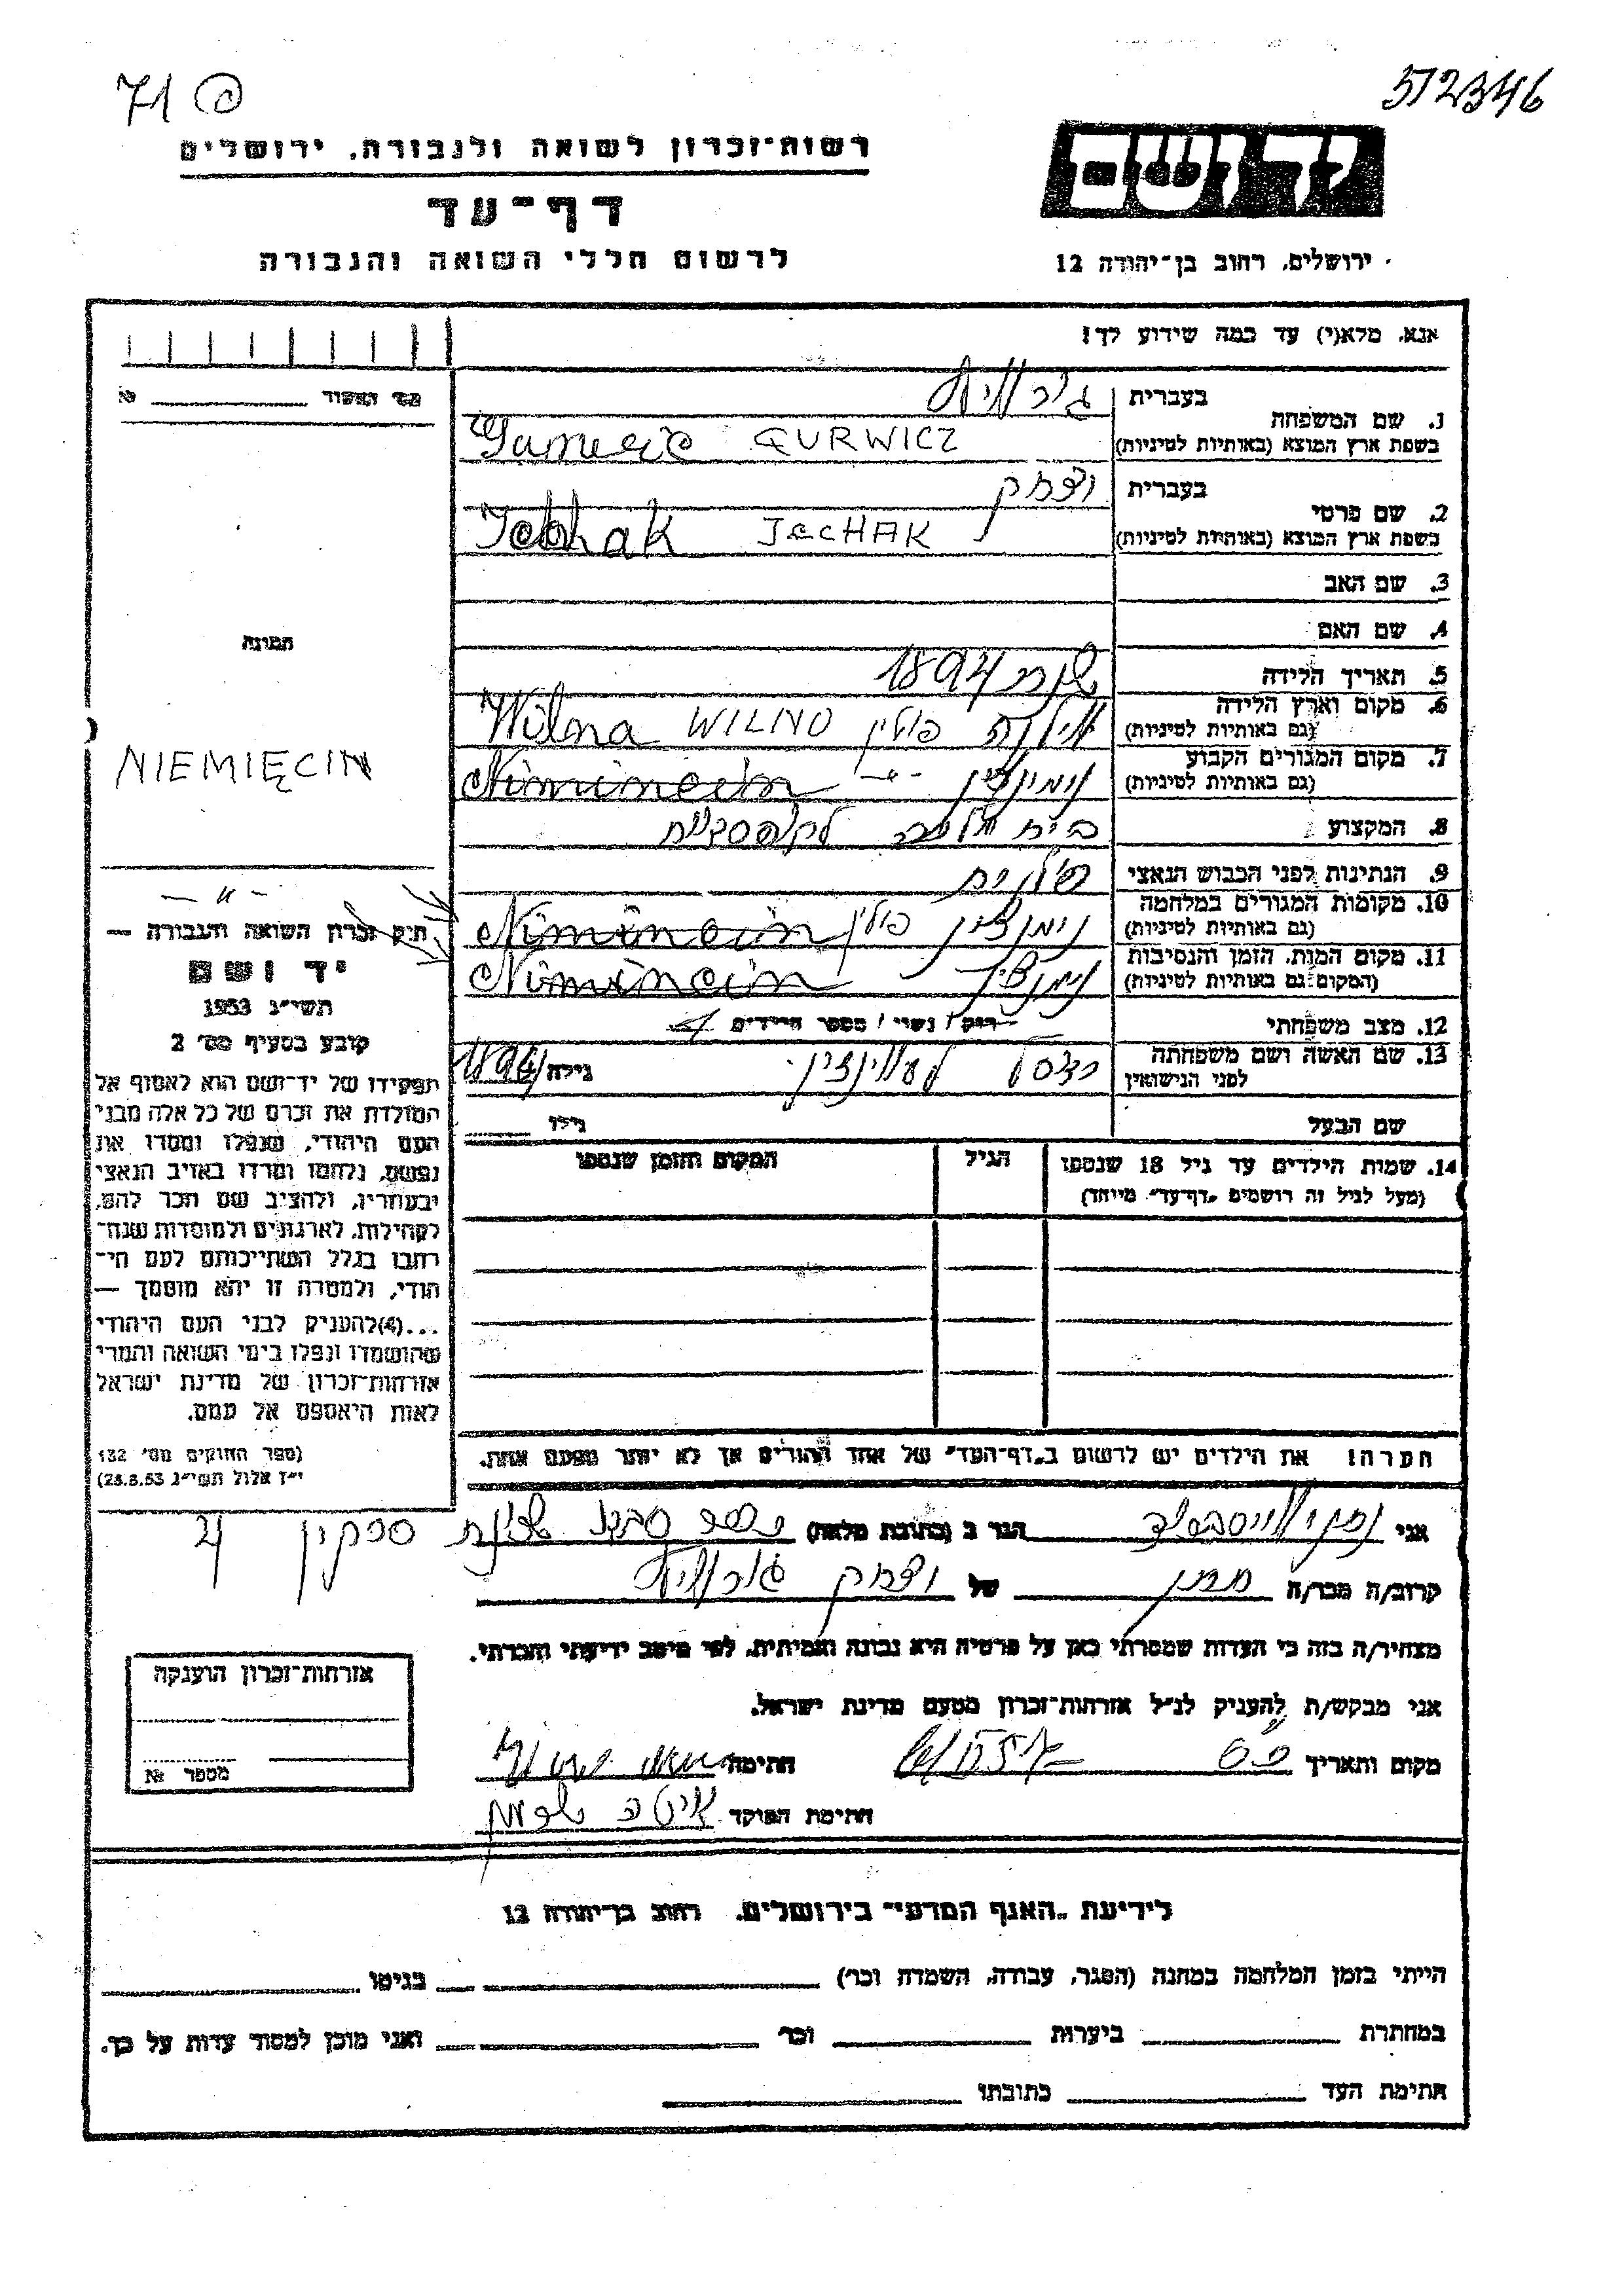 71 פ
512346
רשות־זכרון לשואה ולגבורה, ירושלים
דף־עד
לרשום חללי השואה והגבורה
יד ושם
ירושלים, רחוב בן־יהודה 12
אנא, מלא(י) עד כמה שידוע לך!
1. שם המשפחה
בעברית
בשפת ארץ המוצא (באותיות לטיניות)
GURWICZ
2. שם פרטי
בעברית יצחק
בשפת ארץ המוצא (באותיות לטיניות)
JECHAK
3. שם האב
4. שם האם
5. תאריך הלידה שנת 1894
6. מקום וארץ הלידה
(גם באותיות לטיניות)
וילנה פולין WILNO Wilna
7. מקום המגורים הקבוע
(גם באותיות לטיניות)
נימנצין Nimincin
NIEMIĘCIN
8. המקצוע בית חרושת
9. הנתינות לפני הכבוש הנאצי פולנית
10. מקומות המגורים במלחמה
(גם באותיות לטיניות)
נימנצין פולין Nimincin
11. מקום המות, הזמן והנסיבות
(המקום גם באותיות לטיניות)
נימנצין Nimincin
12. מצב משפחתי
רוק / נשוי / מספר הילדים 4
13. שם האשה ושם משפחתה
לפני הנישואין
גילה 1894
שם הבעל
גילו
14. שמות הילדים עד גיל 18 שנספו
(מעל לגיל זה רושמים "דף־עד" מיוחד)
הגיל
המקום והזמן שנספו
הערה! את הילדים יש לרשום ב"דף־העד" של אחד ההורים אך לא יותר מפעם אחת.
מס' האשור №
תמונה
— " —
חוק זכרון השואה והגבורה —
יד ושם
תשי"ג 1953
קובע בסעיף מס' 2
תפקידו של יד־ושם הוא לאסוף אל
המולדת את זכרם של כל אלה מבני
העם היהודי, שנפלו ומסרו את
נפשם, נלחמו ומרדו באויב הנאצי
ובעוזריו, ולהציב שם וזכר להם,
לקהילות, לארגונים ולמוסדות שנח־
רבו בגלל השתייכותם לעם הי־
הודי, ולמטרה זו יהא מוסמך —
...(4)להעניק לבני העם היהודי
שהושמדו ונפלו בימי השואה והמרי
אזרחות־זכרון של מדינת ישראל
לאות היאספם אל עמם.
(ספר החוקים מס' 132
י"ז אלול תשי"ג 28.8.53)
אני הגר ב (כתובת מלאה)
קרוב/ה מכר/ה חתן של יצחק גורוויץ
מצהיר/ה בזה כי העדות שמסרתי כאן על פרטיה היא נכונה ואמיתית, לפי מיטב ידיעתי והכרתי.
אני מבקש/ת להעניק לנ"ל אזרחות־זכרון מטעם מדינת ישראל.
מקום ותאריך חתימה
חתימת הפוקד
אזרחות־זכרון הוענקה
מספר №
לידיעת "האגף המדעי" בירושלים, רחוב בן־יהודה 12
הייתי בזמן המלחמה במחנה (הסגר, עבודה, השמדה וכו') בגיטו
במחתרת ביערות וכו' ואני מוכן למסור עדות על כך.
חתימת העד כתובתו